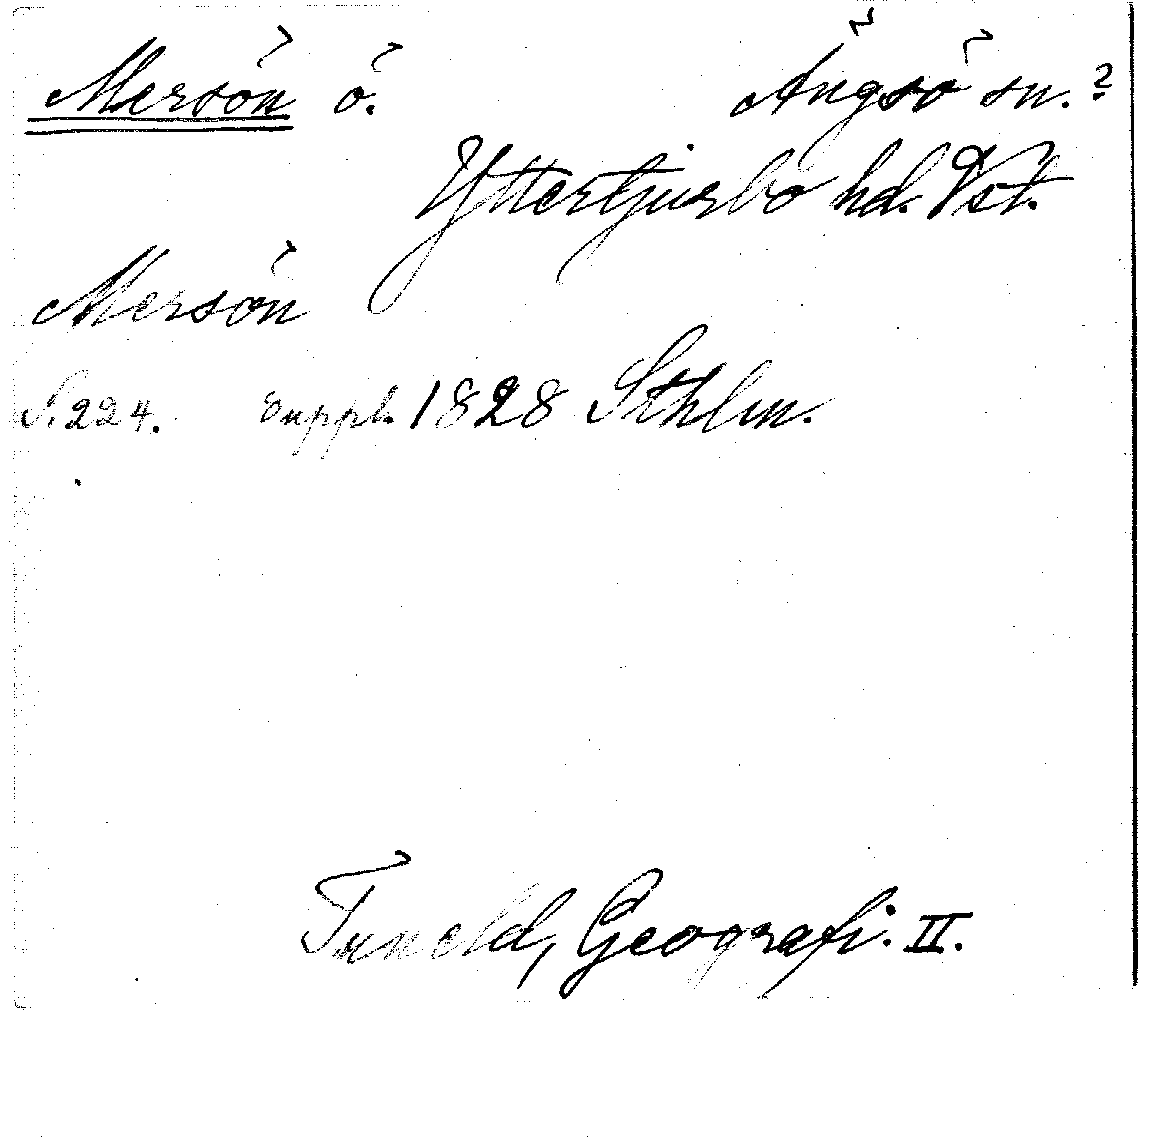 Mersön ö. Ängsö sn.?
Yttertjurbo hd. Vst.
Mersön
S. 224. Suppl. 1828 Sthlm.
Tuneld, Geografi. II.